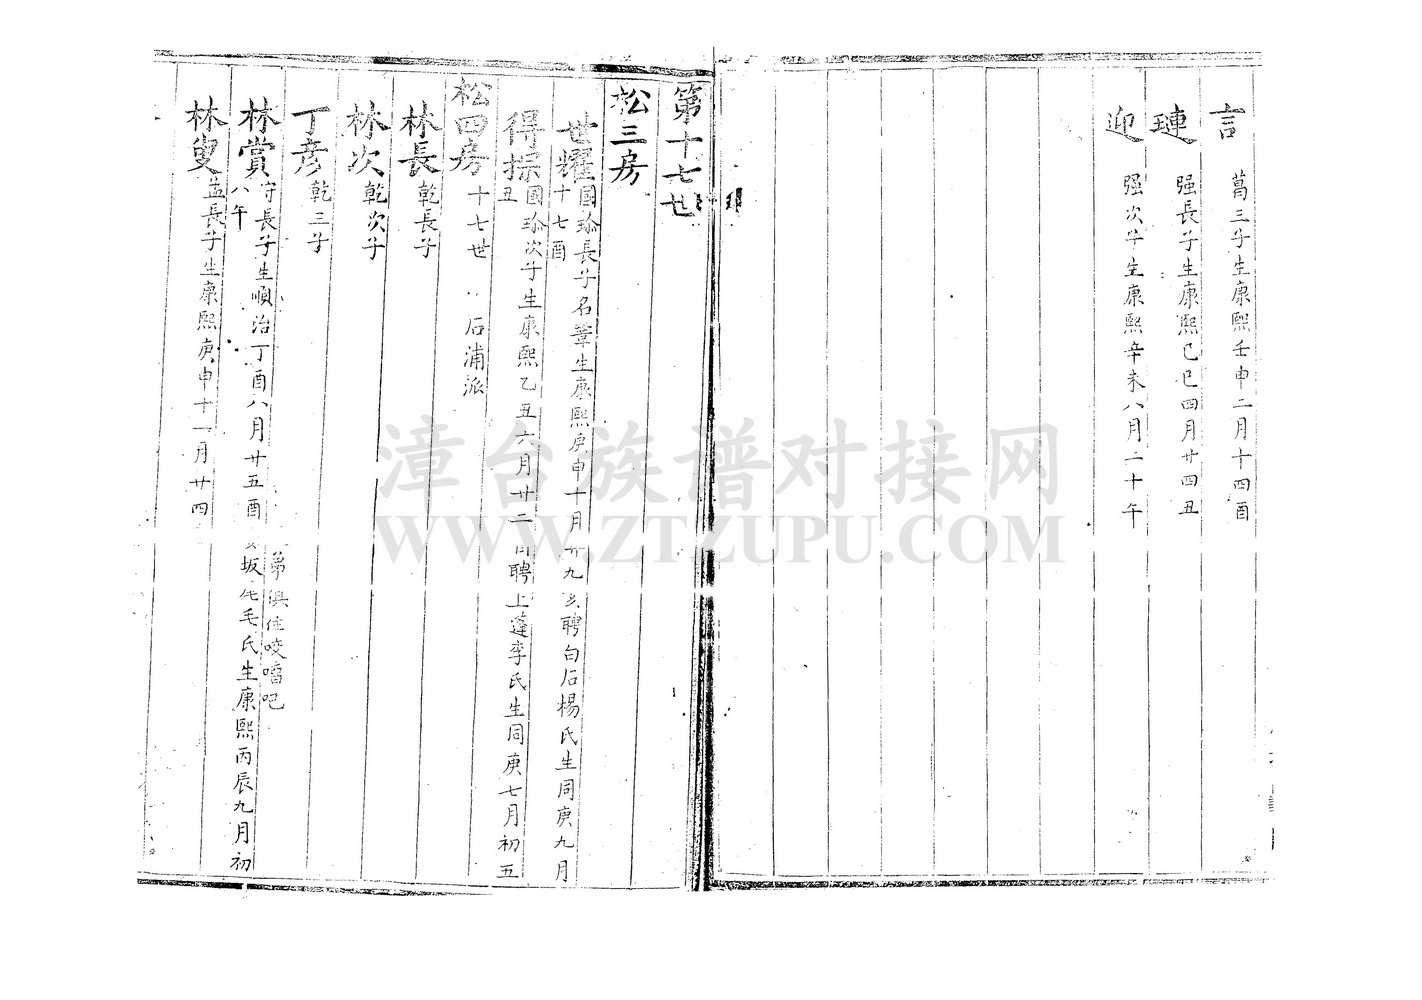 言 葛三子生康熙壬申二月十四酉
璉 强長子生康熙己巳四月廿四丑
迎 强次子生康熙辛未八月二十午
第十七世
松三房
世耀 國珍長子名篳生康熙庚申十月廿九亥聘白石楊氏生同庚九月
十七酉
得採 國珍次子生康熙乙丑六月廿二 聘上蓬李氏生同庚七月初五
丑
松四房 十七世 石浦派
林長 乾長子
林次 乾次子
丁彦 乾三子
弟俱住咬𠺕吧
林賞 守長子生順治丁酉八月廿五酉 坂 毛氏生康熙丙辰九月初
八午
林叟 孟長子生康熙庚申十一月廿四
漳台族谱对接网
WWW.ZTZUPU.COM